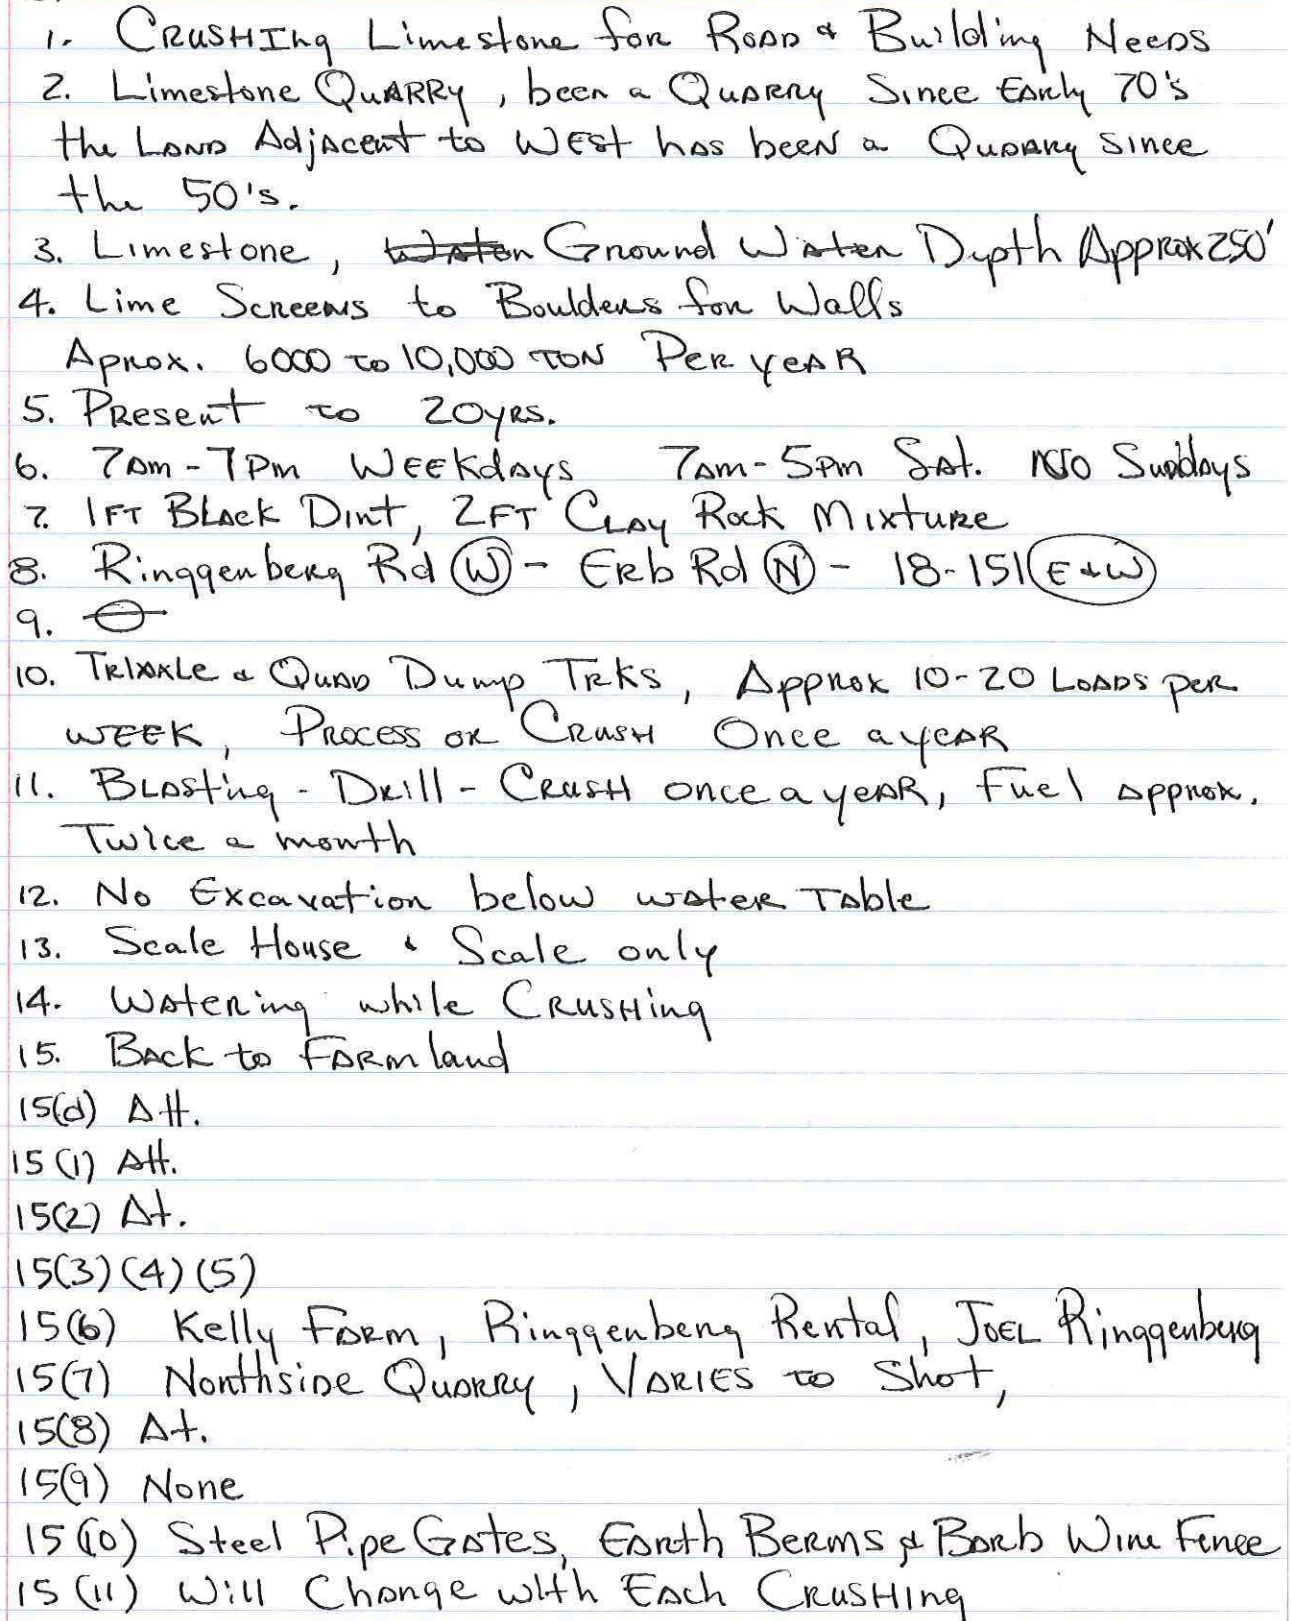 1. Crushing Limestone for Road & Building Needs
2. Limestone Quarry, been a Quarry Since Early 70's
the Land Adjacent to West has been a Quarry since
the 50's.
3. Limestone, Water Ground Water Depth Approx 250'
4. Lime Screens to Boulders for Walls
Aprox. 6000 to 10,000 TON Per year
5. Present to 20yrs.
6. 7am-7pm Weekdays 7am-5pm Sat. No Sundays
7. 1FT Black Dirt, 2FT Clay Rock Mixture
8. Ringgenberg Rd (W) - Erb Rd (N) - 18-151 (E & W)
9. ⊖
10. Triaxle & Quad Dump Trks, Approx 10-20 Loads per
week, Process or Crush Once a year
11. Blasting - Drill - Crush once a year, Fuel approx.
Twice a month
12. No Excavation below water Table
13. Scale House & Scale only
14. Watering while Crushing
15. Back to Farm land
15(d) Att.
15(1) Att.
15(2) At.
15(3)(4)(5)
15(6) Kelly Farm, Ringgenberg Rental, Joel Ringgenberg
15(7) Northside Quarry, Varies to Shot,
15(8) At.
15(9) None
15(10) Steel Pipe Gates, Earth Berms & Barb Wire Fence
15(11) Will Change with Each Crushing